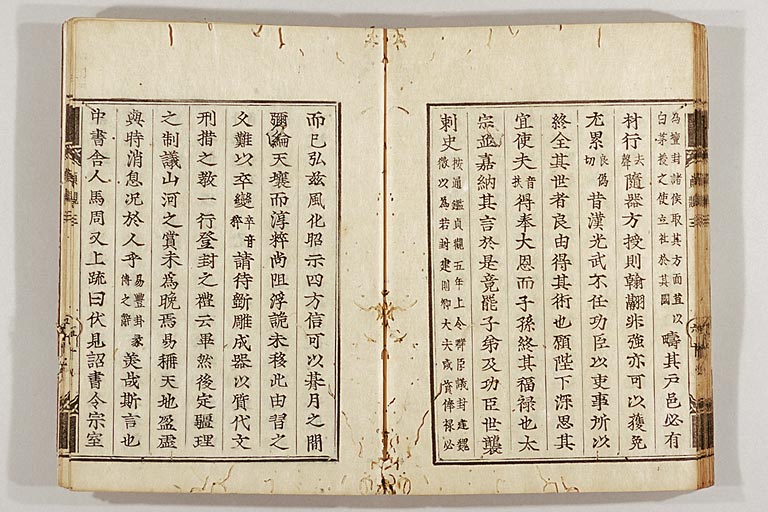 為壇封諸侯取其方面苴以白茅授之使立社於其國疇其戸邑必有
材行去聲隨器方授則翰翮非強亦可以獲免
尤累良偽切昔漢光武不任功臣以吏事所以
終全其世者良由得其術也願陛下深思其
宜使夫音扶得奉大恩而子孫終其福祿也太
宗並嘉納其言於是竟罷子弟及功臣世襲
刺史按通鑑貞觀五年上令群臣議封建魏徵以為若封建則卿大夫咸資俸祿必
而已弘茲風化昭示四方信可以朞月之間
彌綸天壤而淳粹尚阻浮詭未移此由習之
久難以卒變卒音猝請待斲雕成器以質代文
刑措之教一行登封之禮云畢然後定疆理
之制議山河之賞未為晚焉易稱天地盈虛
與時消息況於人乎易豐卦彖傳之辭美哉斯言也
中書舍人馬周又上疏曰伏見詔書令宗室